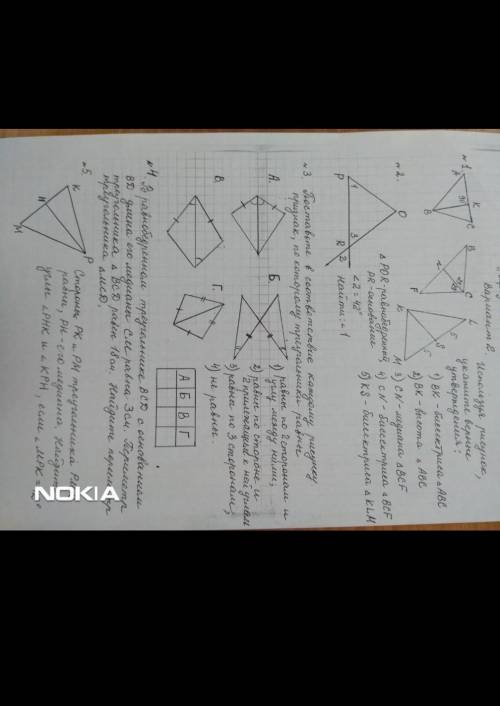 Вариант 2
№1.
Используя рисунок,
укажите верные
утверждения:
1) BK - биссектриса △ABC
2) BK - высота △ABC
3) CN - медиана △BCF
4) CN - биссектриса △BCF
5) KS - биссектриса △KLM
A
K
C
B
B
C
F
K
L
S
M
№2.
△POR - равнобедренный
PR - основание
∠2 = 42°
Найти: ∠1
O
P
R
1
3
2
№3 Поставьте в соответствие каждому рисунку
признак, по которому треугольники равны
А.
Б.
В.
Г.
1) равны по 2 сторонам и
углу между ними;
2) равны по стороне и
2 прилежащим к ней углам
3) равны по 3 сторонам;
4) не равны.
А Б В Г
№4. В равнобедренном треугольнике BCD с основанием
BD длина его медианы CM равна 3см. Периметр
треугольника △BCD равен 18см. Найдите периметр
треугольника △MCD.
№5.
Стороны PK и PM треугольника
равны, PH - его медиана. Найдите
углы ∠PHK и ∠KPH, если ∠MPK =
K
H
P
M
NOKIA